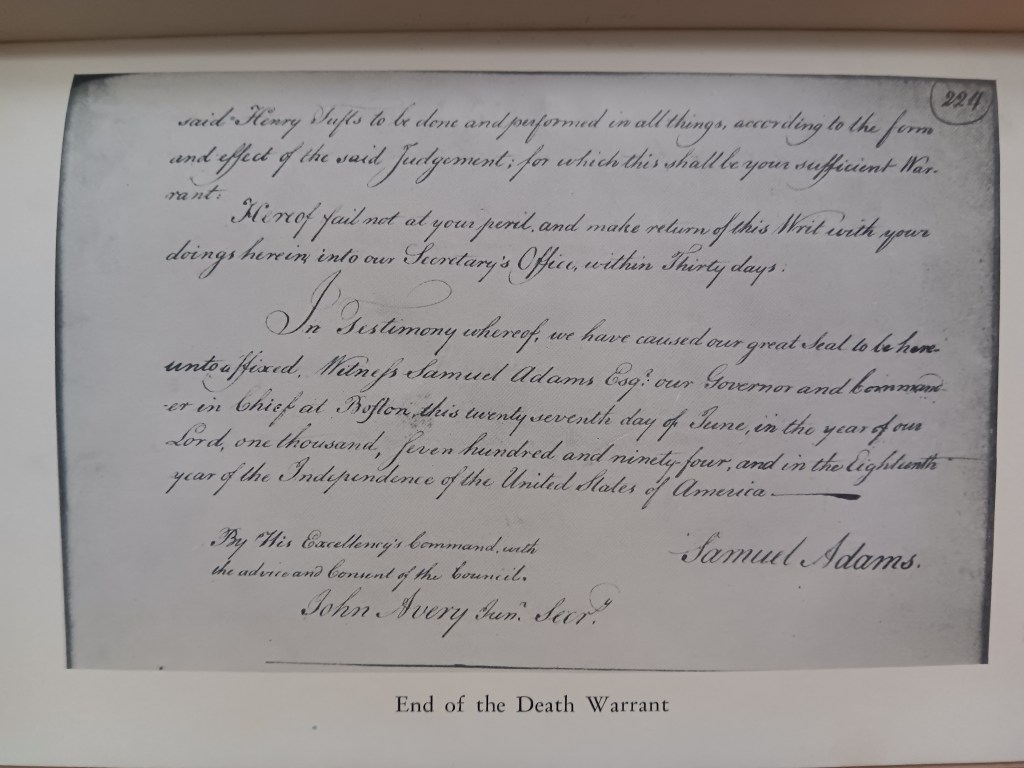 224
said Henry Tufts to be done and performed in all things, according to the form
and effect of the said Judgement; for which this shall be your sufficient War-
rant.
Hereof fail not at your peril, and make return of this Writ with your
doings herein, into our Secretary's Office, within Thirty days.
In Testimony whereof, we have caused our great Seal to be here-
unto affixed. Witneſs Samuel Adams Esqr. our Governor and Command-
-er in Chief at Boſton, this twenty seventh day of June, in the year of our
Lord, one thousand, ſeven hundred and ninety-four, and in the Eighteenth
year of the Independence of the United States of America.
By His Excellency's Command, with
the advice and Consent of the Council.
Samuel Adams.
John Avery Junr. Secry.
End of the Death Warrant